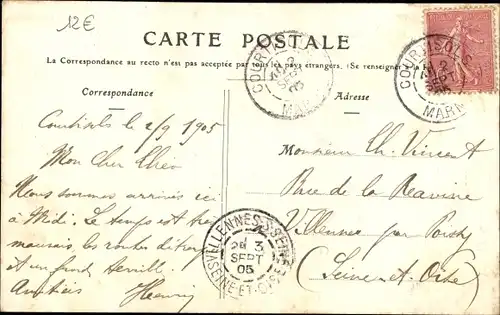 12€
CARTE POSTALE
La Correspondance au recto n'est pas acceptée par tous les pays étrangers. (Se renseigner à la
Correspondance
Adresse
COURTISOLS
2 SEPT 05
MARNE
COURTISOLS
2 SEPT 05
MARNE
Courtisols 2/9 1905
Mon Cher
Nous sommes arrivés ici
à Midi. Le temps est très
mauvais, les routes détrempées
et un fond
Amitiés Henri
Monsieur Ch. Vincent
Rue de la Ravine
Villennes par Poissy
(Seine et Oise)
VILLENNES-S-SEINE
3 SEPT 05
SEINE-ET-OISE